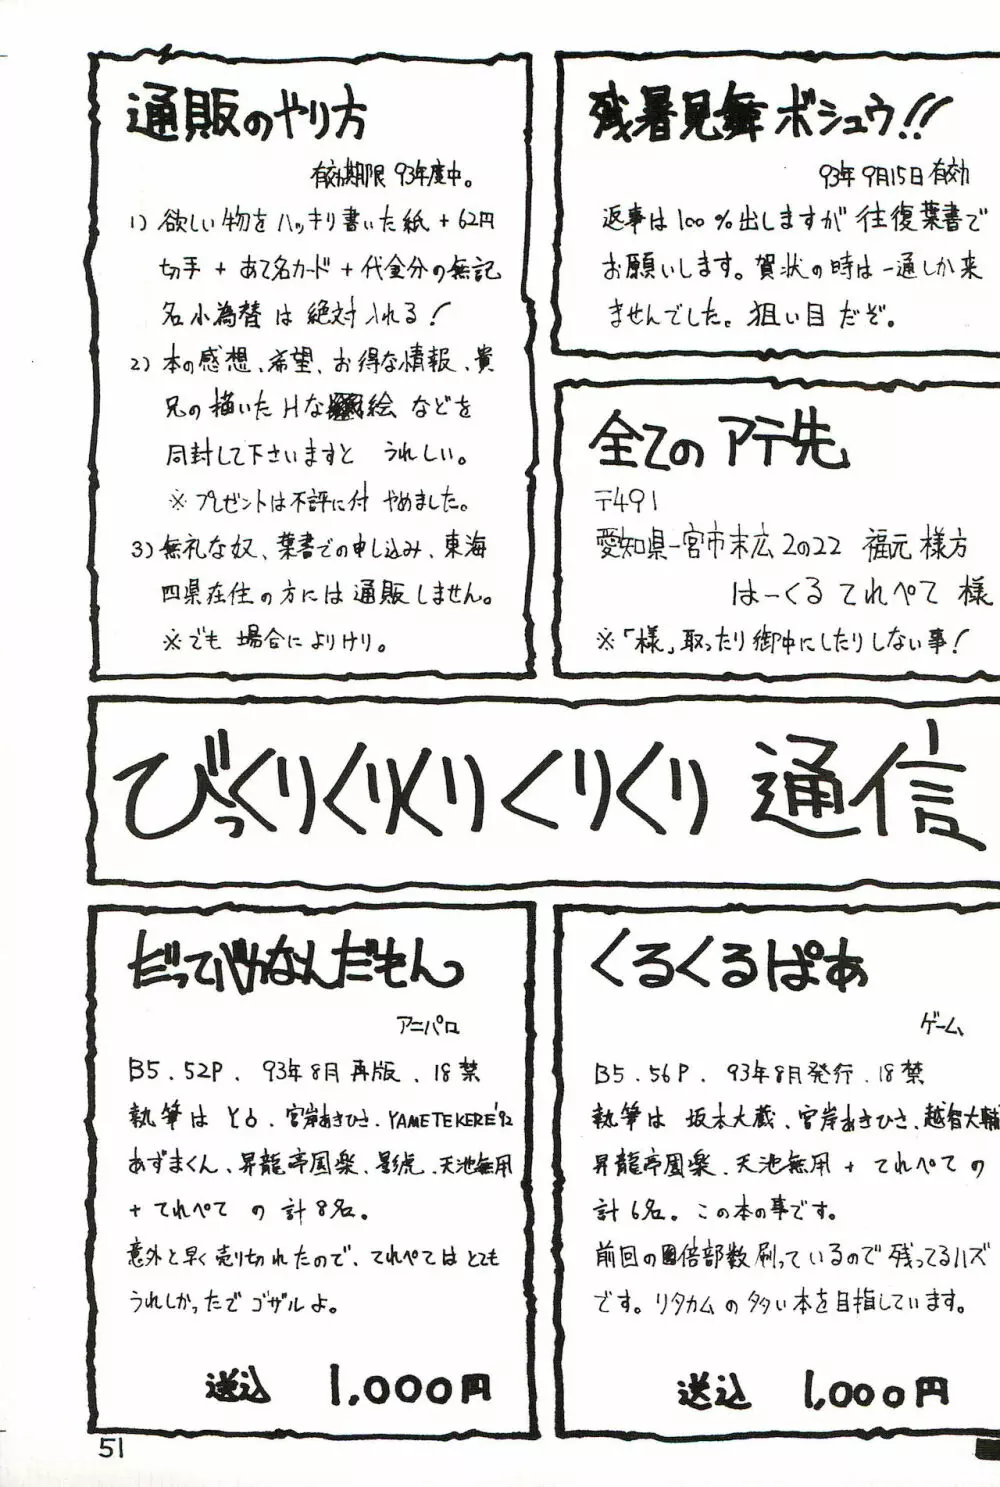 通販のやり方
有効期限 93年度中。
1) 欲しい物をハッキリ書いた紙 + 62円
切手 + あて名カード + 代金分の無記
名小為替 は 絶対入れる!
2) 本の感想、希望、お得な情報、貴
兄の描いた Hな 絵 などを
同封して下さいますと うれしい。
※ プレゼントは不評に付 やめました。
3) 無礼な奴、葉書での申し込み、東海
四県在住の方には通販しません。
※でも 場合によりけり。
残暑見舞 ボシュウ!!
93年9月15日有効
返事は100%出しますが 往復葉書で
お願いします。賀状の時は一通しか来
ませんでした。狙い目だぞ。
全ての アテ先
〒491
愛知県一宮市末広2の22 福元 様方
はーくる てれぺて 様
※「様」取ったり御中にしたりしない事!
びっくりくりくりくりくり 通信
だってバカなんだもんっ
アニパロ
B5.52P. 93年8月再版.18禁
執筆は とろ.宮岸あきひさ.YAMETEKERE'92
あずまくん、昇龍亭園楽、影虎、天池無用
+ てれぺて の 計8名。
意外と早く売り切れたので、てれぺては とても
うれしかったで ゴザルよ。
送込 1,000円
くるくるぱあ
ゲーム
B5.56P. 93年8月発行.18禁
執筆は 坂本大蔵、宮岸あきひさ、越智大輔
昇龍亭園楽、天池無用 + てれぺての
計6名。この本の事です。
前回の 倍部数刷っているので残ってるハズ
です。リタカムの多い本を目指しています。
送込 1,000円
51